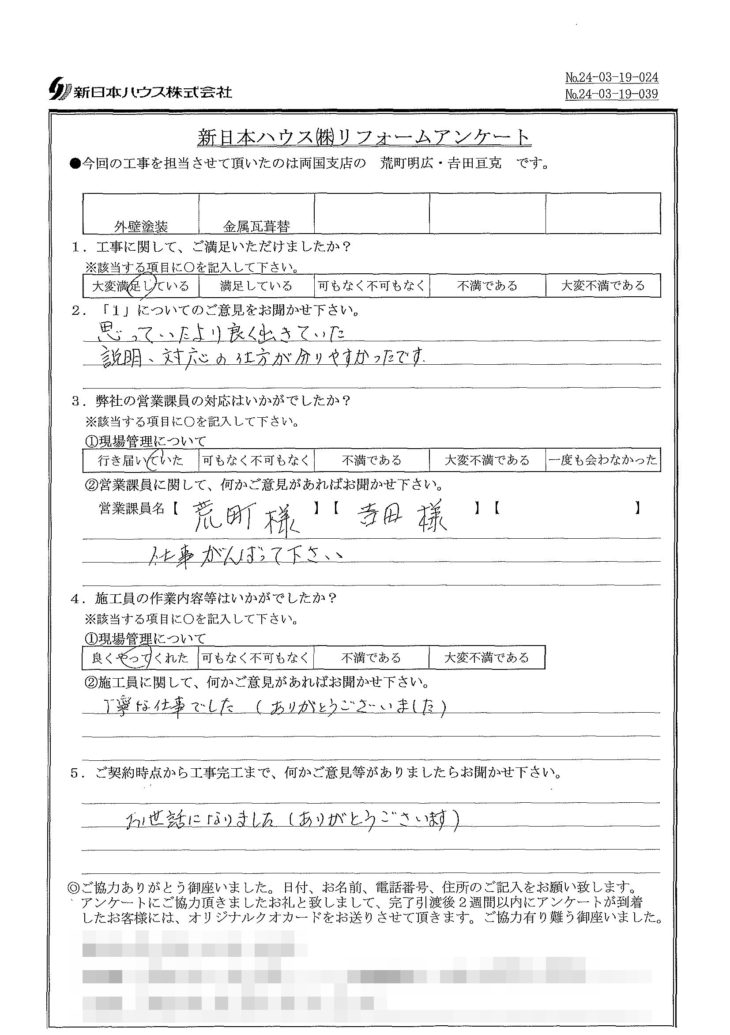 №24-03-19-024
新日本ハウス株式会社
№24-03-19-039
新日本ハウス㈱リフォームアンケート
●今回の工事を担当させて頂いたのは両国支店の 荒町明広・吉田亘克 です。
外壁塗装 金属瓦葺替
1．工事に関して、ご満足いただけましたか？
※該当する項目に○を記入して下さい。
大変満足している 満足している 可もなく不可もなく 不満である 大変不満である
2．「1」についてのご意見をお聞かせ下さい。
思っていたより良く出きていた
説明、対応の仕方が分りやすかったです.
3．弊社の営業課員の対応はいかがでしたか？
※該当する項目に○を記入して下さい。
①現場管理について
行き届いていた 可もなく不可もなく 不満である 大変不満である 一度も会わなかった
②営業課員に関して、何かご意見があればお聞かせ下さい。
営業課員名【 荒町様 】【 吉田様 】【 】
仕事がんばって下さい
4．施工員の作業内容等はいかがでしたか？
※該当する項目に○を記入して下さい。
①現場管理について
良くやってくれた 可もなく不可もなく 不満である 大変不満である
②施工員に関して、何かご意見があればお聞かせ下さい。
丁寧な仕事でした（ありがとうございました）
5．ご契約時点から工事完工まで、何かご意見等がありましたらお聞かせ下さい。
お世話になりました（ありがとうございます）
◎ご協力ありがとう御座いました。日付、お名前、電話番号、住所のご記入をお願い致します。
アンケートにご協力頂きましたお礼と致しまして、完了引渡後２週間以内にアンケートが到着
したお客様には、オリジナルクオカードをお送りさせて頂きます。ご協力有り難う御座いました。